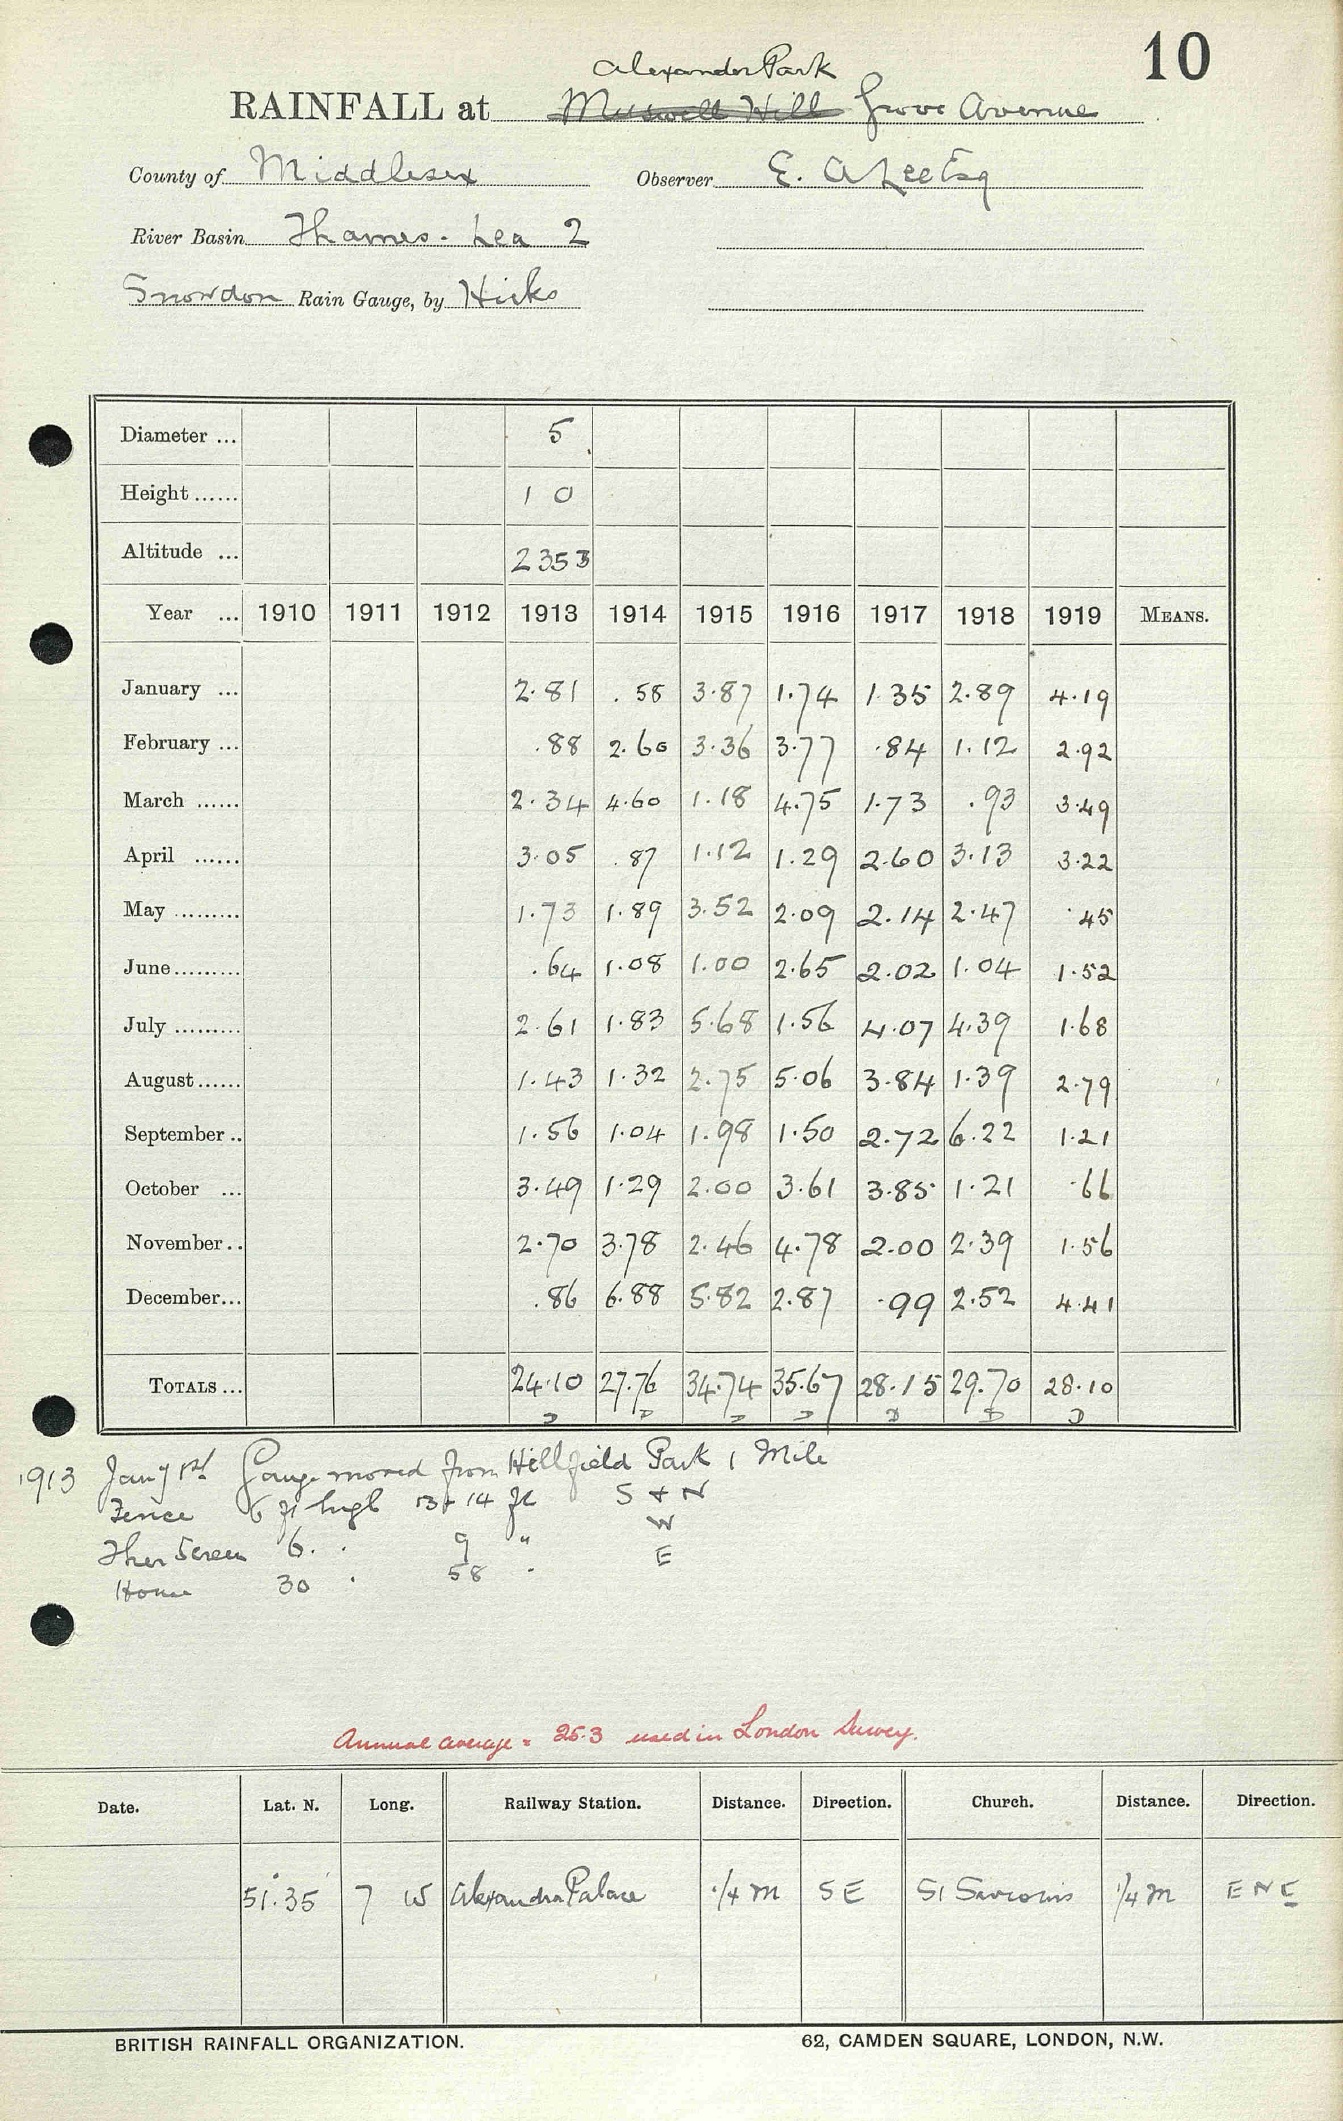 10
Alexander Park
RAINFALL at Muswell Hill Grove Avenue
County of Middlesex Observer E. A Lee Esq
River Basin Thames. Lea 2
Snowdon Rain Gauge, by Hicks
Diameter ... 5
Height ...... 10
Altitude ... 2353
Year ... 1910 1911 1912 1913 1914 1915 1916 1917 1918 1919 MEANS.
January ... 2.81 .58 3.87 1.74 1.35 2.89 4.19
February ... .88 2.60 3.36 3.77 .84 1.12 2.92
March ...... 2.34 4.60 1.18 4.75 1.73 .93 3.49
April ...... 3.05 .87 1.12 1.29 2.60 3.13 3.22
May ......... 1.73 1.89 3.52 2.09 2.14 2.47 .45
June......... .64 1.08 1.00 2.65 2.02 1.04 1.52
July ......... 2.61 1.83 5.68 1.56 4.07 4.39 1.68
August...... 1.43 1.32 2.75 5.06 3.84 1.39 2.79
September .. 1.56 1.04 1.98 1.50 2.72 6.22 1.21
October ... 3.49 1.29 2.00 3.61 3.85 1.21 .66
November .. 2.70 3.78 2.46 4.78 2.00 2.39 1.56
December... .86 6.88 5.82 2.87 .99 2.52 4.41
TOTALS ... 24.10 27.76 34.74 35.67 28.15 29.70 28.10
1913 Jany 1st Gauge moved from Hillfield Park 1 Mile
Fence 6 ft high 13 & 14 ft S & N
W
Ther Screen 6. . 9 " E
House 30 . 58 .
Annual average = 25.3 used in London Survey.
Date. Lat. N. Long. Railway Station. Distance. Direction. Church. Distance. Direction.
51°.35' 7 W Alexandra Palace 1/4 m SE St Saviours 1/4 m ENE
BRITISH RAINFALL ORGANIZATION. 62, CAMDEN SQUARE, LONDON, N.W.